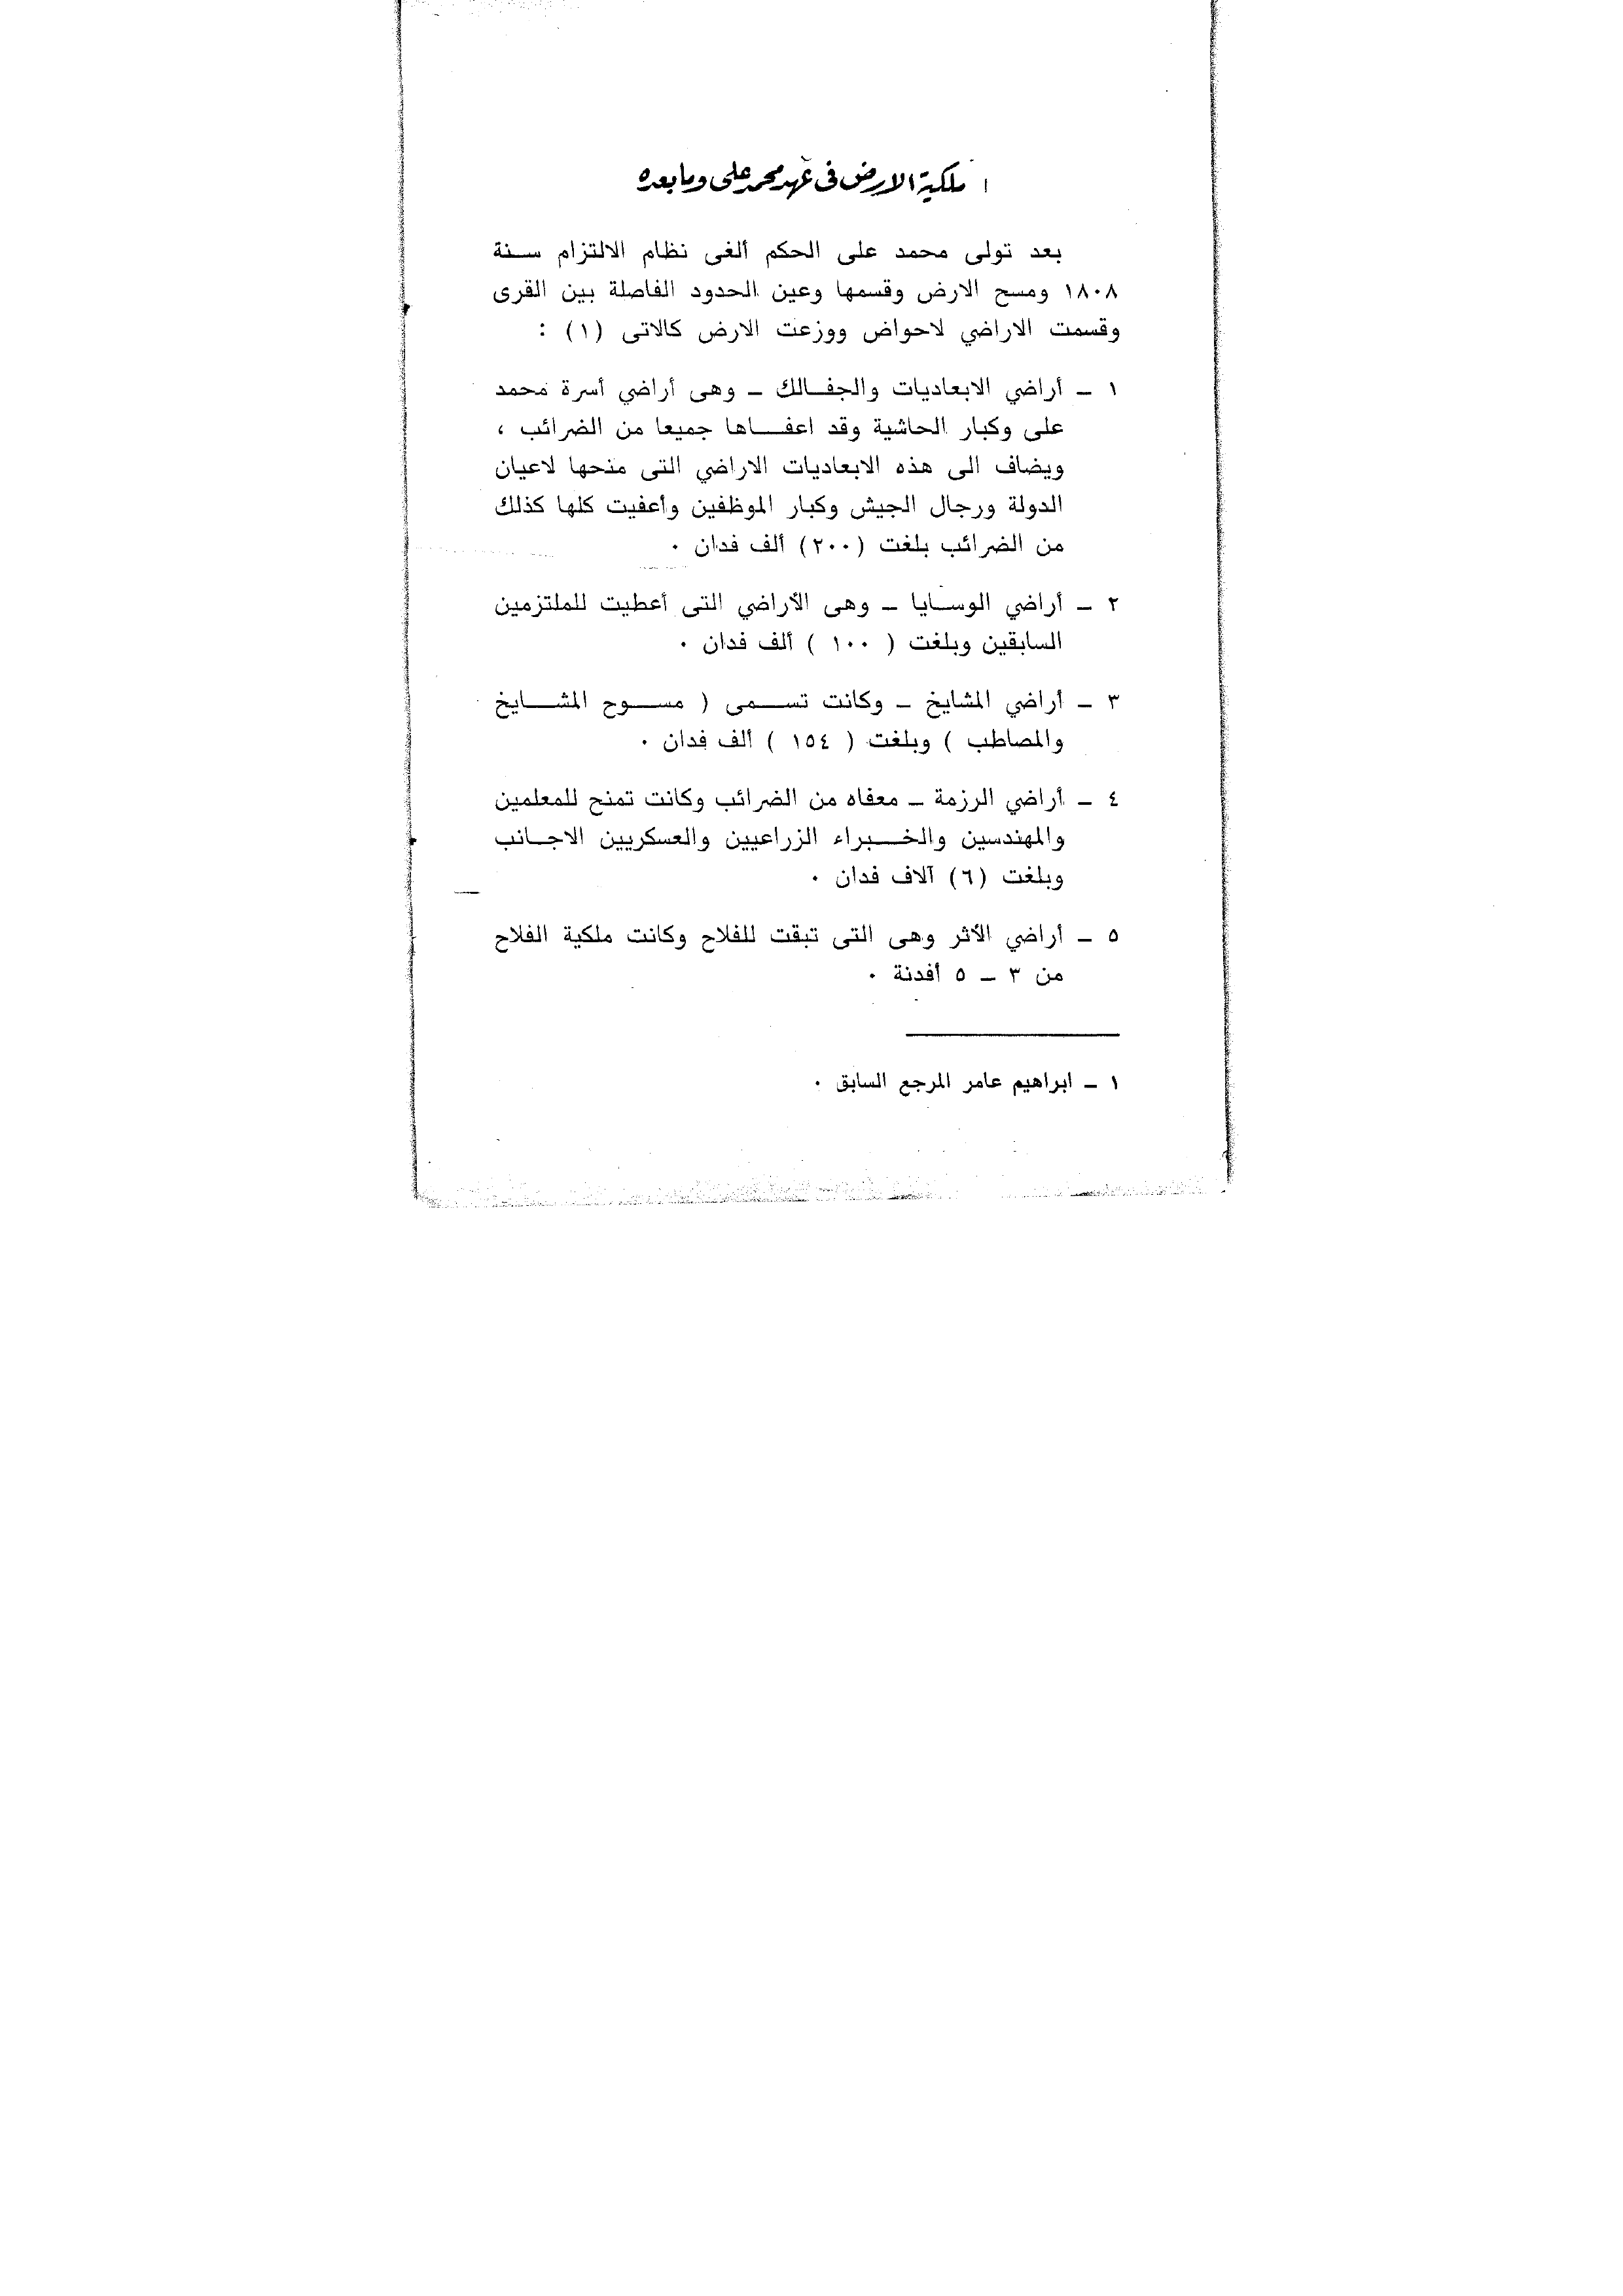 ملكية الارض فى عهد محمد على وما بعده
بعد تولى محمد على الحكم ألغى نظام الالتزام سنة
١٨٠٨ ومسح الارض وقسمها وعين الحدود الفاصلة بين القرى
وقسمت الاراضي لاحواض ووزعت الارض كالاتى (١) :
١ ـ أراضي الابعاديات والجفالك ـ وهى أراضي أسرة محمد
على وكبار الحاشية وقد اعفاها جميعا من الضرائب ،
ويضاف الى هذه الابعاديات الاراضي التى منحها لاعيان
الدولة ورجال الجيش وكبار الموظفين وأعفيت كلها كذلك
من الضرائب بلغت (٢٠٠) ألف فدان ٠
٢ ـ أراضي الوسايا ـ وهى الأراضي التى أعطيت للملتزمين
السابقين وبلغت ( ١٠٠ ) ألف فدان ٠
٣ ـ أراضي المشايخ ـ وكانت تسمى ( مسوح المشايخ
والمصاطب ) وبلغت ( ١٥٤ ) ألف فدان ٠
٤ ـ أراضي الرزمة ـ معفاه من الضرائب وكانت تمنح للمعلمين
والمهندسين والخبراء الزراعيين والعسكريين الاجانب
وبلغت (٦) آلاف فدان ٠
٥ ـ أراضي الأثر وهى التى تبقت للفلاح وكانت ملكية الفلاح
من ٣ ـ ٥ أفدنة ٠
١ ـ ابراهيم عامر المرجع السابق ٠